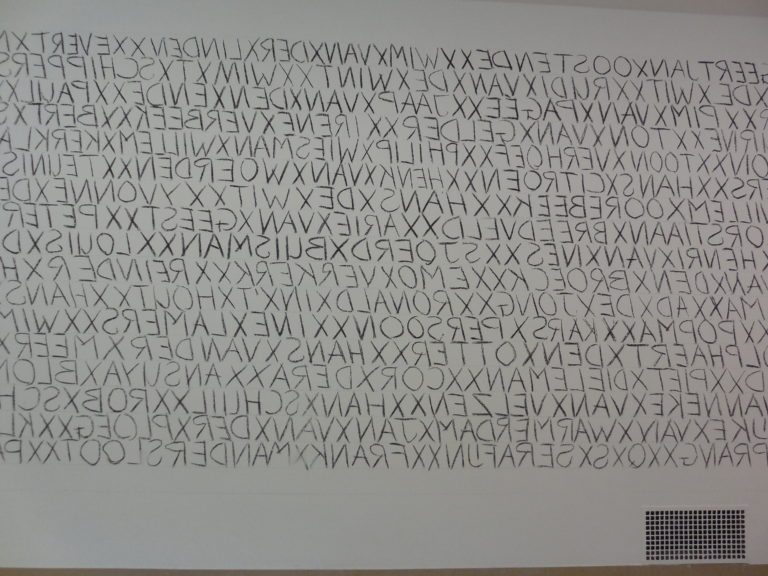 GEERTJANXOOSTENDEXXWIMXVANXDERXLINDENXXEVERTXN
XDEXWITXXRUDIXVANXDEXWINTXXWIMXTXSCHIPPERS
XXPIMXVANXPAGEEXXJAAPXVANXDENXENDEXXPAUL
VEXXTONXVANXGELDERXXIRENEXVERBEEKXXBERTX
ONXXTOONXVERHOEFXXPHILIPXWIESMANXWILLEMXKERKLA
RSXXHANSXCITROENXXHENKXVANXWOERDENXXTEUNIS
WILLEMXOOREBEEKXXHANSXDEXWITXXYVONNEXDE
ORSTIAANXBREEDVELDXXARIEXVANXGEESTXXPETER
HENRIXVANXNESXXSTJOERDXBUISMANXXLOUISXD
VANXDENXBROECKXXEMOXVERKERKXXREINDERXH
MAXXADXDEXJONGXXRONALDXINXTXHOUTXXHANS
XXPOPMAXXKARSXPERSOONXXLIVEXLAMERSXXWIM
PHAERTXDENXOTTERXHANSXVANXDERXMEERX
DXXPIETXDIELEMANXXCORXDERAXXANSUYAXBLOM
ANEKEXVANXVELZENXXHANXSCHUILXXROBXSCH
UKEXVANXWARMERDAMXJANXVANXDERXPLOEGXXKL
PRANGXXOXSXSERAFIJNXXFRANKXMANDERSLOOTXXPA